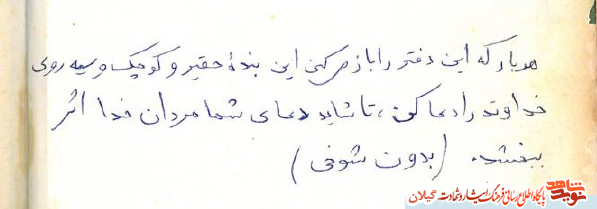 هر بار که این دفتر را باز می‌کنی این بندهٔ حقیر و کوچک و سیه روی
خداوند را دعا کن، تا شاید دعای شما مردان خدا اثر
ببخشد. (بدون شوخی)
نوید شاهد
پایگاه اطلاع رسانی فرهنگ ایثار و شهادت گیلان